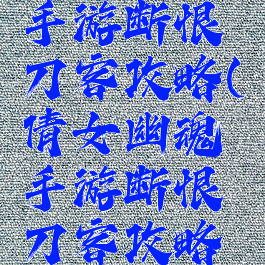 手游断恨
刀客攻略(
倩女幽魂
手游断恨
刀客攻略